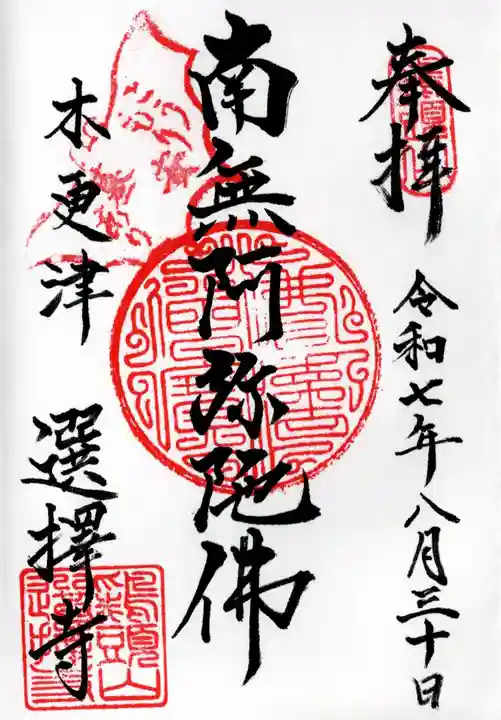 奉拝
令和七年八月三十日
南無阿弥陀佛
木更津
選擇寺